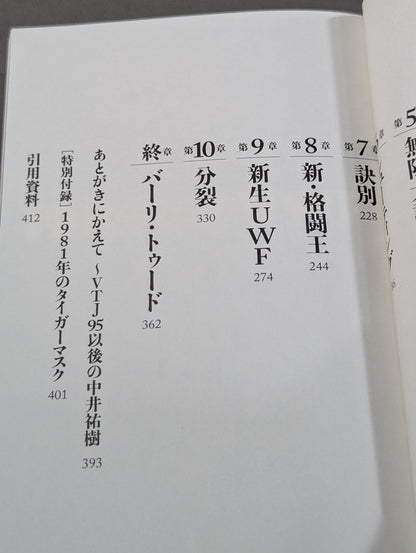 第5章
第7章 訣別 228
第8章 新・格闘王 244
第9章 新生UWF 274
第10章 分裂 330
終章 バーリ・トゥード 362
あとがきにかえて〜VTJ95以後の中井祐樹 393
［特別付録］1981年のタイガーマスク 401
引用資料 412